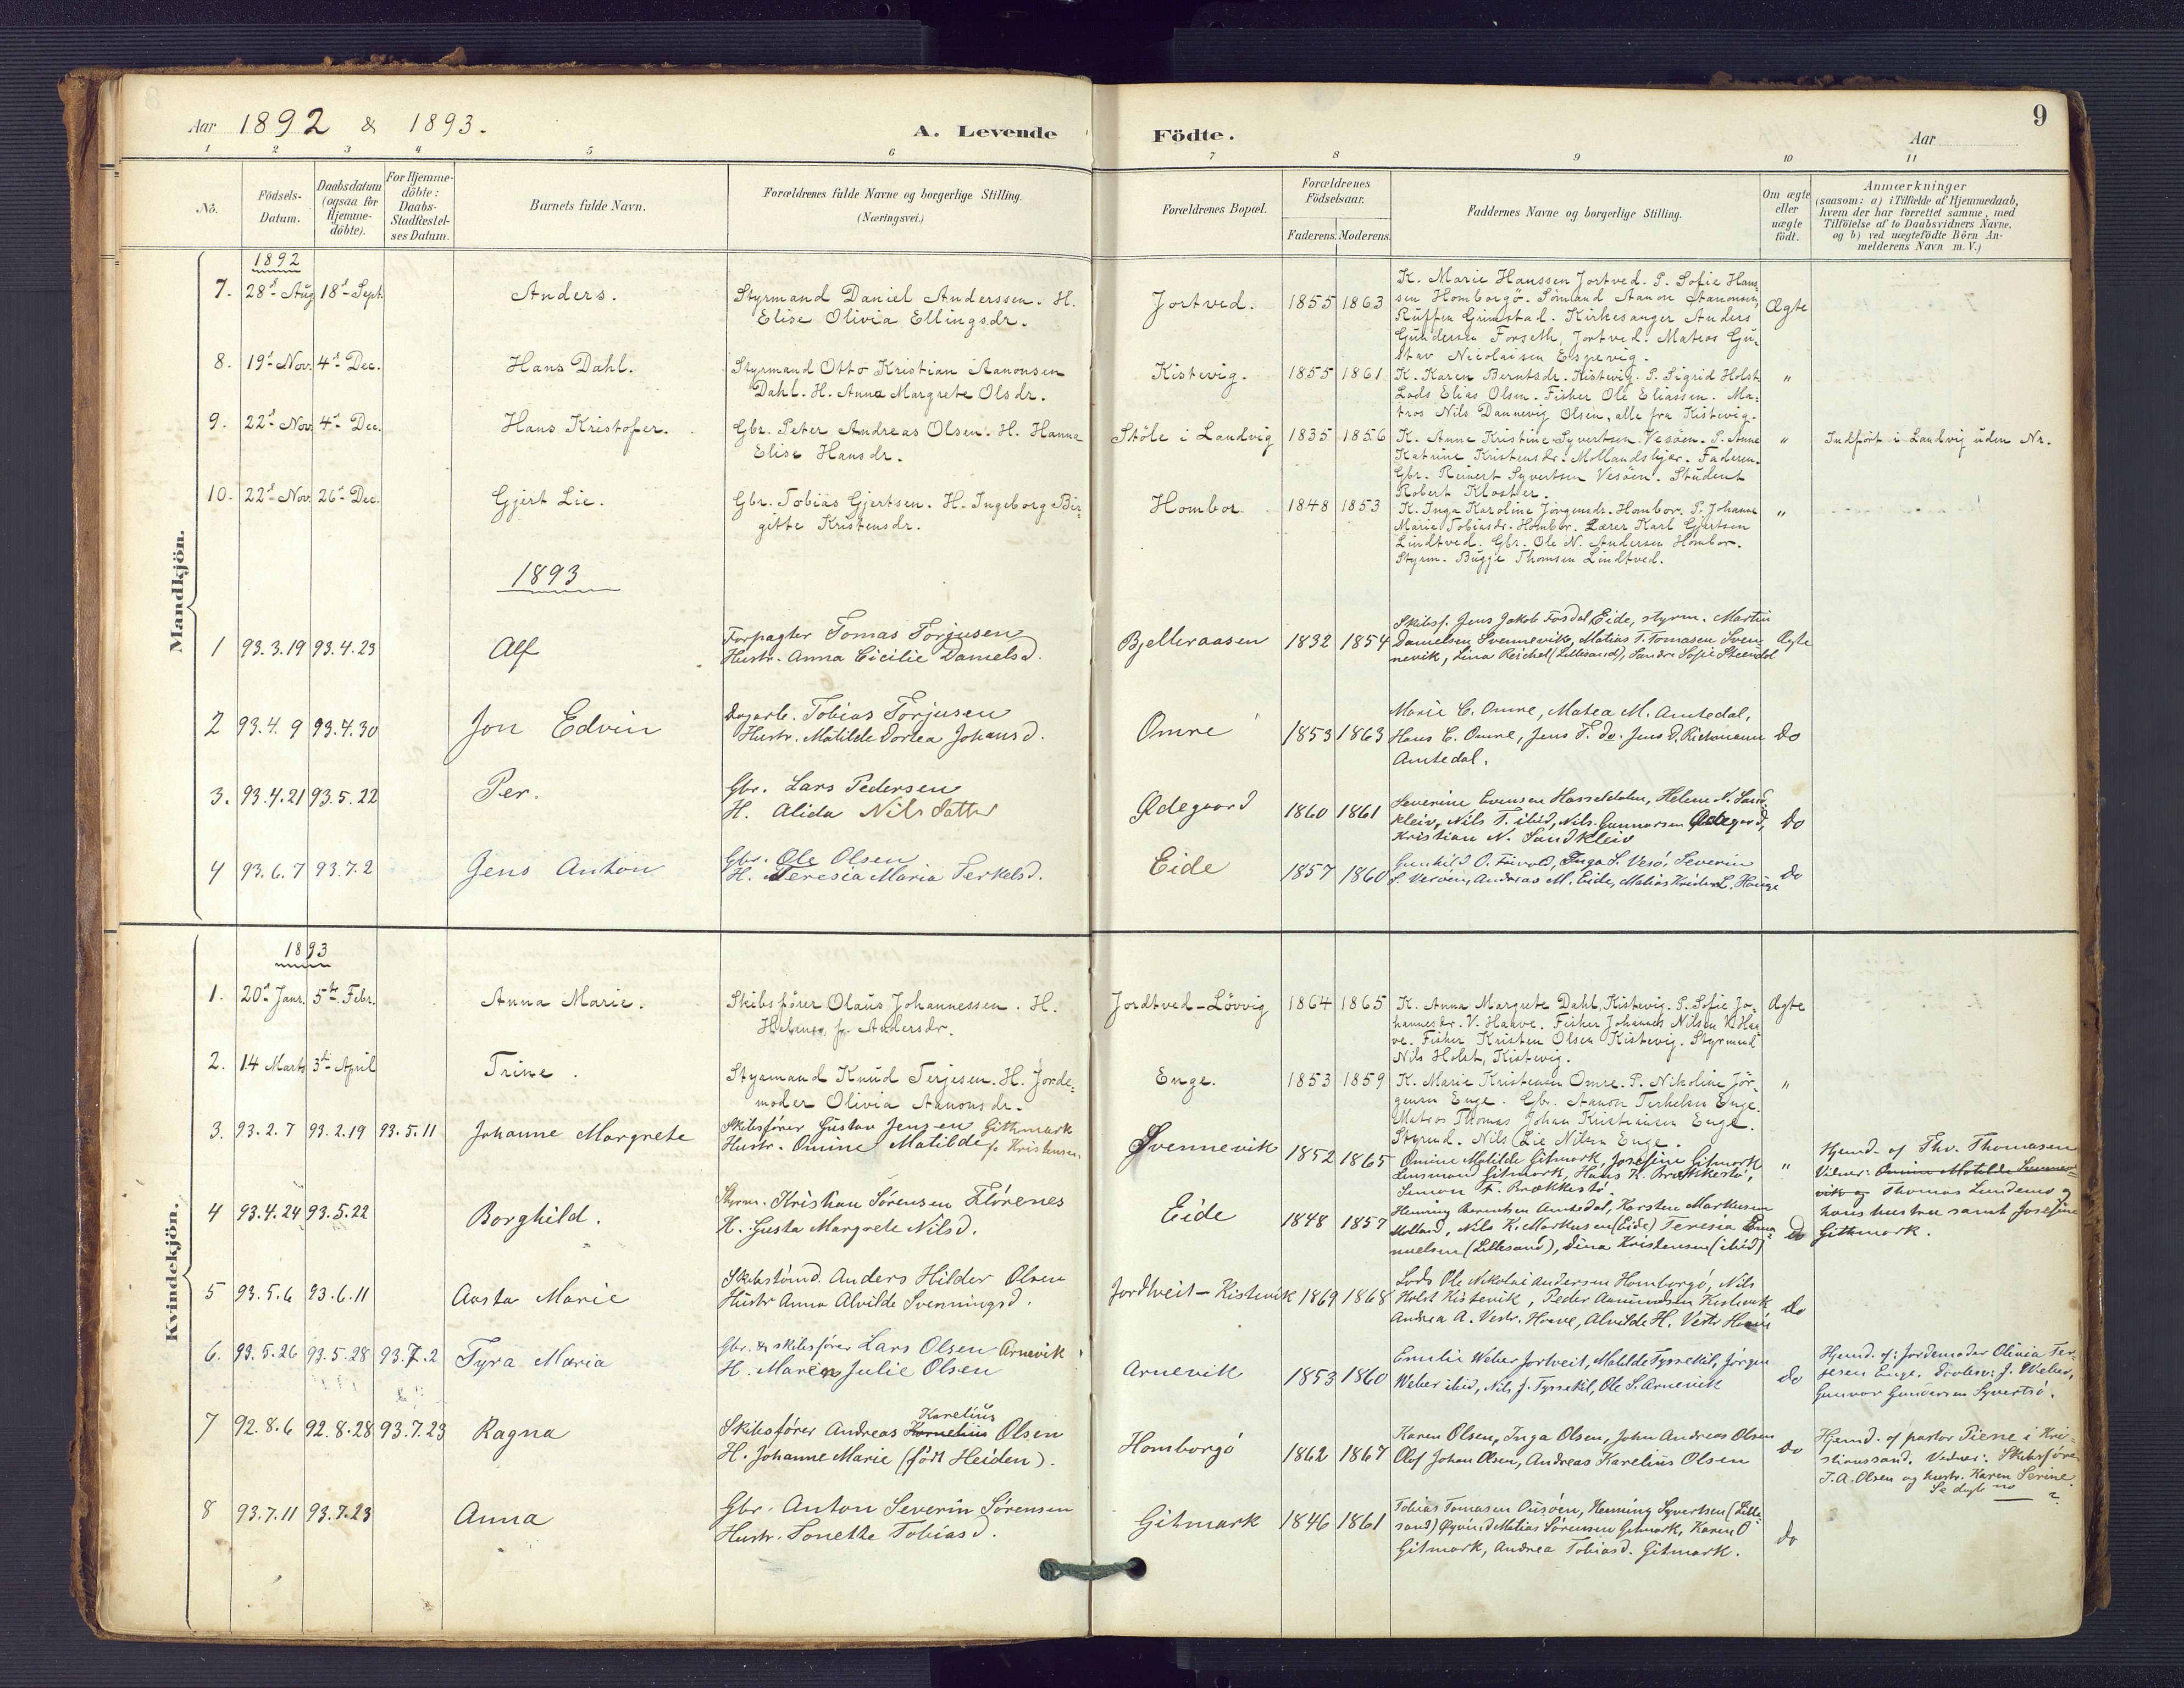 Aar 1892 & 1893.
A. Levende Födte.
Aar
9
1 2 3 4 5 6 7 8 9 10 11
No.
Födsels-Datum.
Daabsdatum (ogsaa for Hjemme-döbte).
For Hjemme-döbte: Daabs-Stadfæstel-ses Datum.
Barnets fulde Navn.
Forældrenes fulde Navne og borgerlige Stilling.
(Næringsvei.)
Forældrenes Bopæl.
Forældrenes Födselsaar.
Faderens. Moderens.
Faddernes Navne og borgerlige Stilling.
Om ægte eller uægte födt.
Anmærkninger
(saasom: a) i Tilfælde af Hjemmedaab,
hvem der har forrettet samme, med
Tilföielse af to Daabsvidners Navne,
og b) ved uægtefödte Börn An-
melderens Navn m. V.)
Mandkjön.
1892
7. 28d Aug 18d Sept. Anders.
Styrmand Daniel Anderssen. H.
Elise Olivia Ellingsdr.
Jortved. 1855 1863
K. Marie Hanssen Jortved. P. Sofie Hans-
sen Homborgö. Sömand Aanon Aanonsen,
Ruften Grimstad. Kirkesanger Anders
Gundersen Forseth, Jortved. Matros Gu-
stav Nicolaisen Espevig.
Ægte
8. 19d Nov. 4d Dec. Hans Dahl.
Styrmand Otto Kristian Aanonsen
Dahl. H. Anna Margrete Olsdr.
Kistevig. 1855 1861
K. Karen Berntsdr. Kistevig. P. Sigrid Holst
Lods Elias Olsen. Fisker Ole Eliassen. Ma-
tros Nils Dannevig Olsen, alle fra Kistevig.
"
9. 22d Nov. 4d Dec. Hans Kristofer.
Gbr. Peter Andreas Olsen. H. Hanna
Elise Hansdr.
Stöle i Landvig 1835 1856
K. Anne Kristine Syvertsen Vesöen. P. Anne
Katrine Kristensdr. Mollandskjær. Faderen.
Gbr. Reinert Syvertsen Vesöen. Student
Robert Kloster.
"
Indfört i Landvig uden Nr.
10. 22d Nov. 26d Dec. Gjert Lie.
Gbr. Tobias Gjertsen. H. Ingeborg Bir-
gitte Kristensdr.
Hombor 1848 1853
K. Inga Karoline Jörgensdr. Hombor. P. Johanne
Marie Tobiasdr. Hombor. Lærer Karl Gjertsen
Lindtved. Gbr. Ole N. Andersen Hombor.
Styrm. Bugge Thomsen Lindtved.
"
1893
1 93.3.19 93.4.23 Alf
Forpagter Tomas Torjusen
Hustr. Anna Cicilie Danielsd.
Bjelleraasen 1832 1854
Skibsf. Jens Jakob Fosdal Eide, styrm. Martin
Danielsen Svennevik, Matias T. Tomasen Sven-
nevik, Lina Reichel (Lillesand), Sandra Sofie Steendal
Ægte
2 93.4.9 93.4.30 Jon Edvin
Dagarb. Tobias Torjusen
Hustr. Matilde Dortea Johansd.
Omre 1853 1863
Marie C. Omre, Matea M. Amtedal,
Hans C. Omre, Jens T. do. Jens D. Riekmann
Amtedal.
do
3. 93.4.21 93.5.22 Per.
Gbr. Lars Pedersen
H. Alida Nilsdatter
Ødegaard 1860 1861
Severine Evensen Hasseldalen, Helene N. Sand-
kleiv, Nils T. ibid, Nils Gunnarsen Ødegard,
Kristian N. Sandkleiv
do
4 93.6.7 93.7.2 Jens Anton
Gbr. Ole Olsen
H. Teresia Maria Terkelsd.
Eide 1857 1860
Gunhild O. Frivold, Inga S. Vesö, Severin
S. Vesöen, Andreas M. Eide, Matias Krider L. Hauge
do
Kvindekjön.
1893
1. 20d Janr. 5te Febr. Anna Marie.
Skibsförer Olaus Johannessen. H.
Helene Andersdr.
Jordtved-Lövvig 1864 1865
K. Anna Margrete Dahl, Kistevig. P. Sofie Jo-
hannesdr. V. Haave. Fisker Johannes Nilsen V. Haa-
ve. Fisker Kristen Olsen Kistevig. Styrmd
Nils Holst, Kistevig.
Ægte
2. 14 Marts 3die April Trine.
Styrmand Knud Terjesen. H. Jorde-
moder Olivia Aanonsdr.
Enge. 1853 1859
K. Marie Kristensen Omre. P. Nikoline Jör-
gensen Enge. Gbr. Aanon Terkelsen Enge.
Matros Thomas Johan Kristiansen Enge.
Styrmd. Nils Lie Nilsen Enge.
"
3. 93.2.7 93.2.19 93.5.11 Johanne Margrete
Skibsfører Gustav Jensen Githmark
Hustr. Omine Matilde f. Kristensen
Svennevik 1852 1865
Omine Matilde Gitmark, Josefine Gitmark
Lensmand Gitmark, Hans K. Brækkestö,
Simon F. Brækkestö.
"
Hjemd. af Thv. Thomasen
Vidner: Omine Matilde Svenne-
vik og Thomas Lundemo og
hans hustru samt Josefine
Githmark.
4 93.4.24 93.5.22 Borghild.
Styrm. Kristian Sørensen Flörenes
H. Gusta Margrete Nilsd.
Eide 1848 1857
Henning Berentsen Amtedal, Karsten Markusen
Molland, Nils K. Markusen (Eide) Teresia Ema-
nuelsen (Lillesand), Dina Kristensen (ibid)
do
5 93.5.6 93.6.11 Aasta Marie
Skibstömd. Anders Hilder Olsen
Hustr Anna Alvilde Svenningsd.
Jordtveit-Kistevik 1869 1868
Lods Ole Nikolai Andersen Homborgö, Nils
Holst Kistevik, Peder Aanundsen Kistevik
Andrea A. Vestr. Haave, Alvilde H. Vestr Haave
do
6. 93.5.26 93.5.28 93.7.2 Tyra Maria
Gbr. & skibsfører Lars Olsen Arnevik
H. Maren Julie Olsen
Arnevik 1853 1860
Emilie Weber Jortveit, Matilde Tyssekil, Jørgen
Weber ibid, Nils J. Tyssekil, Ole S. Arnevik
do
Hjemd. af: Jordemoder Olivia Ter-
jesen Enge. Daabsv: J. Weber,
Gunvor Gundersen Syvertsö.
7 92.8.6 92.8.28 93.7.23 Ragna
Karelius
Skibsfører Andreas Kornelius Olsen
H. Johanne Marie (född Heiden).
Homborgö 1862 1867
Karen Olsen, Inga Olsen, John Andreas Olsen
Olof Johan Olsen, Andreas Karelius Olsen
do
Hjemd. af pastor Piene i Kri-
stianssand. Vidner: Skibsfører
T. A. Olsen og hustr. Karen Serine
8 93.7.11 93.7.23 Anna
Gbr. Anton Severin Sørensen
Hustr. Sonette Tobiasd.
Gitmark 1846 1861
Tobias Tomasen Ousöen, Henning Syvertsen (Lille-
sand) Øyvind Matias Sørensen Gitmark, Karen O
Gitmark, Andrea Tobiasd. Gitmark.
do